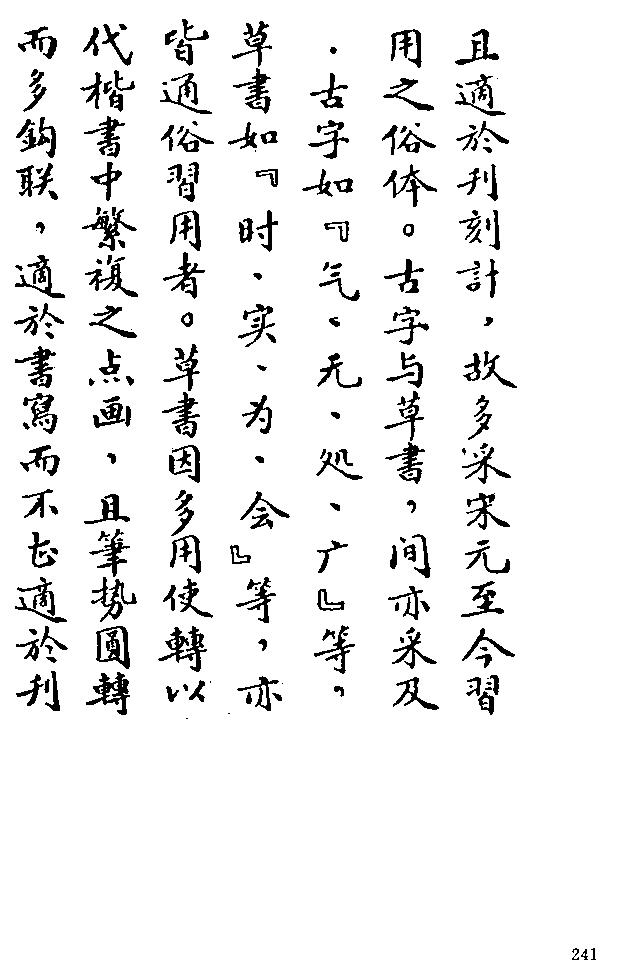 且適於刋刻計，故多采宋元至今習
用之俗体。古字与草書，间亦采及
．古字如『气、无、処、广』等，
草書如『时、实、为、会』等，亦
皆通俗習用者。草書因多用使轉以
代楷書中繁複之点画，且筆势圓轉
而多鈎联，適於書寫而不甚適於刋
241